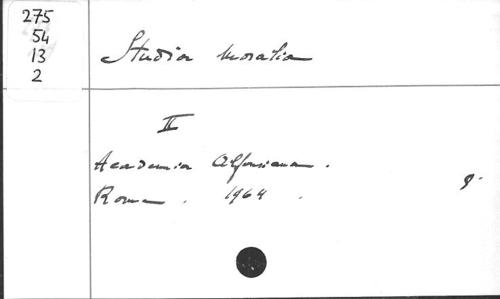 275
54
13
2
Studia Moralia
II
Academia Alfonsiana.
Roma. 1964.
8.